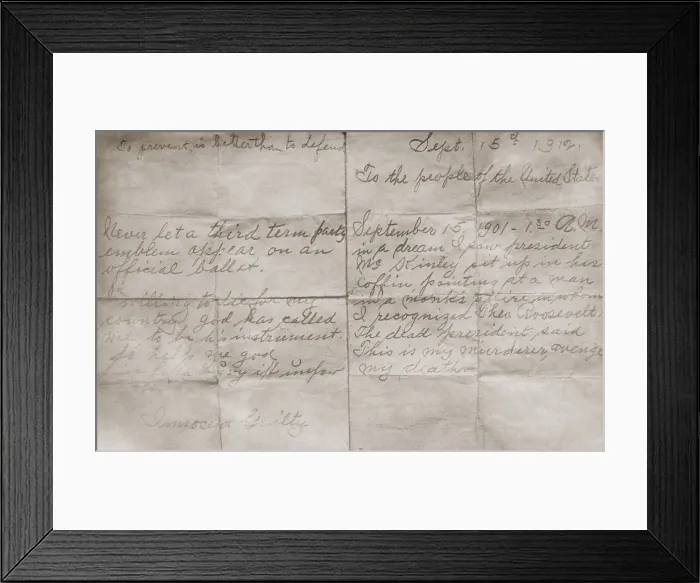 To prevent is better than to defend
Never let a third term party
emblem appear on an
official ballot.
willing to die for my
country, god has called
me to be his instrument.
So help me god
Innocent Guilty
Sept. 15th 1912.
To the people of the United States
September 15 1901 - 1:30 A.M.
in a dream I saw president
McKinley sit up in his
coffin, pointing at a man
in a monk's attire in whom
I recognized Theo. Roosevelt.
The dead president said
This is my murderer, avenge
my death